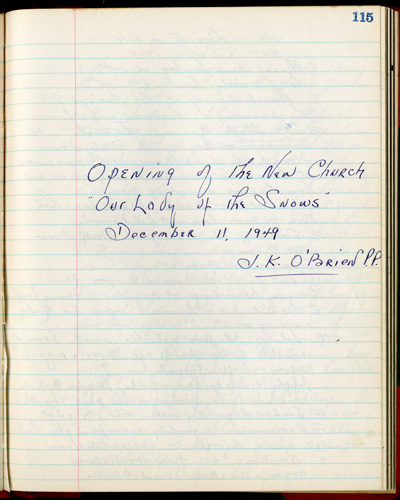 115
Opening of the New Church
"Our Lady of the Snows"
December 11, 1949
J. K. O'Brien P.P.